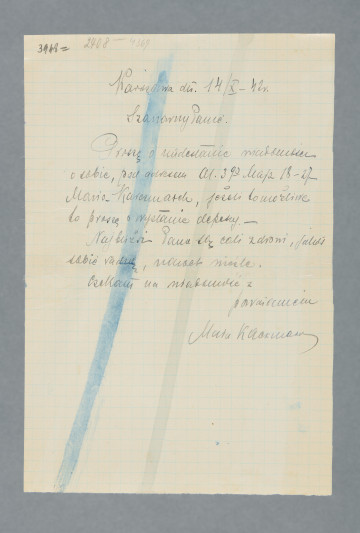 3968 = 2908
Warszawa dn. 14/X - 42r.
Szanowny Panie.
Proszę o nadesłanie wiadomości
o sobie, pod adresem Al. 3go Maja 18-
Maria Kaczmarek, jeżeli to możliwe
to proszę o wysłanie depeszy —
Najbliżsi Pana są cali zdrowi, jakoś
sobie radzą,
Czekam na wiadomość z
poważaniem
Maria Kaczmarek